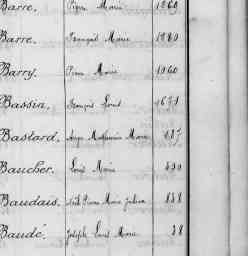 Barre. Pierre Marie 1960
Barre. François Marie 1980
Barry. Pierre Marie 1960
Bassin. François Louis 1671
Bastard. Ange Mathurin Marie 137
Baucher. Louis Marie 330
Baudais. Pierre Marie Julien 838
Baudé. Joseph Louis Marie 38